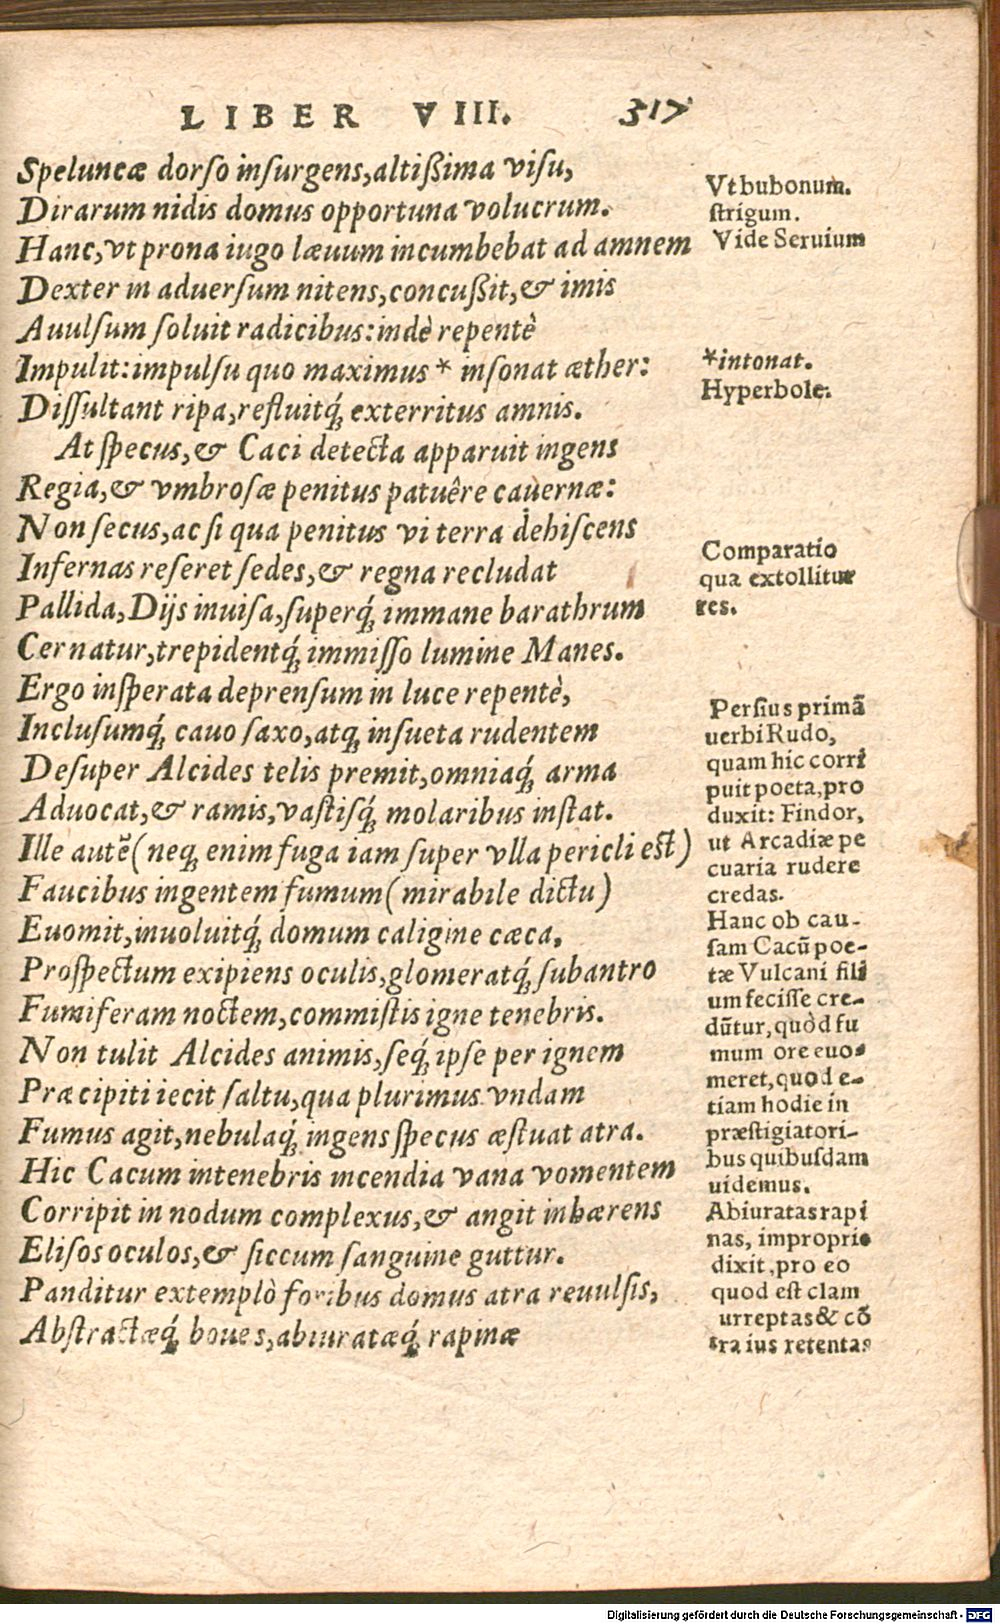 LIBER VIII. 317
Speluncæ dorso insurgens,altißima visu,
Dirarum nidis domus opportuna volucrum.
Hanc,vt prona iugo læuum incumbebat ad amnem
Dexter in aduersum nitens,concußit,& imis
Auulsum soluit radicibus:indè repentè
Impulit:impulsu quo maximus * insonat æther:
Dissultant ripæ,refluitq́; exterritus amnis.
At specus,& Caci detecta apparuit ingens
Regia,& vmbrosæ penitus patuêre cauernæ:
Non secus,ac si qua penitus vi terra dehiscens
Infernas reseret sedes,& regna recludat
Pallida,Dijs inuisa,superq́; immane barathrum
Cernatur,trepidentq́; immisso lumine Manes.
Ergo insperata deprensum in luce repentè,
Inclusumq́; cauo saxo,atq; insueta rudentem
Desuper Alcides telis premit,omniaq́; arma
Aduocat,& ramis,vastisq́; molaribus instat.
Ille autẽ(neq; enim fuga iam super vlla pericli est)
Faucibus ingentem fumum(mirabile dictu)
Euomit,inuoluitq́; domum caligine cæca,
Prospectum exipiens oculis,glomeratq́; sub antro
Fumiferam noctem,commistis igne tenebris.
Non tulit Alcides animis,seq́; ipse per ignem
Præcipiti iecit saltu,qua plurimus vndam
Fumus agit,nebulaq́; ingens specus æstuat atra.
Hic Cacum in tenebris incendia vana vomentem
Corripit in nodum complexus,& angit inhærens
Elisos oculos,& siccum sanguine guttur.
Panditur extemplò foribus domus atra reuulsis,
Abstractæq́; boues,abiuratæq́; rapinæ
Vt bubonum.
strigum.
Vide Seruium
*intonat.
Hyperbole.
Comparatio
qua extollitur
res.
Persius primã
uerbi Rudo,
quam hic corri
puit poeta,pro
duxit: Findor,
ut Arcadiæ pe
cuaria rudere
credas.
Hanc ob cau-
sam Cacũ poe-
tæ Vulcani fili
um fecisse cre-
dũtur,quòd fu
mum ore euo-
meret,quod e-
tiam hodie in
præstigiatori-
bus quibusdam
uidemus.
Abiuratas rapi
nas, improprie
dixit,pro eo
quod est clam
urreptas & cõ
tra ius retentas
Digitalisierung gefördert durch die Deutsche Forschungsgemeinschaft - DFG